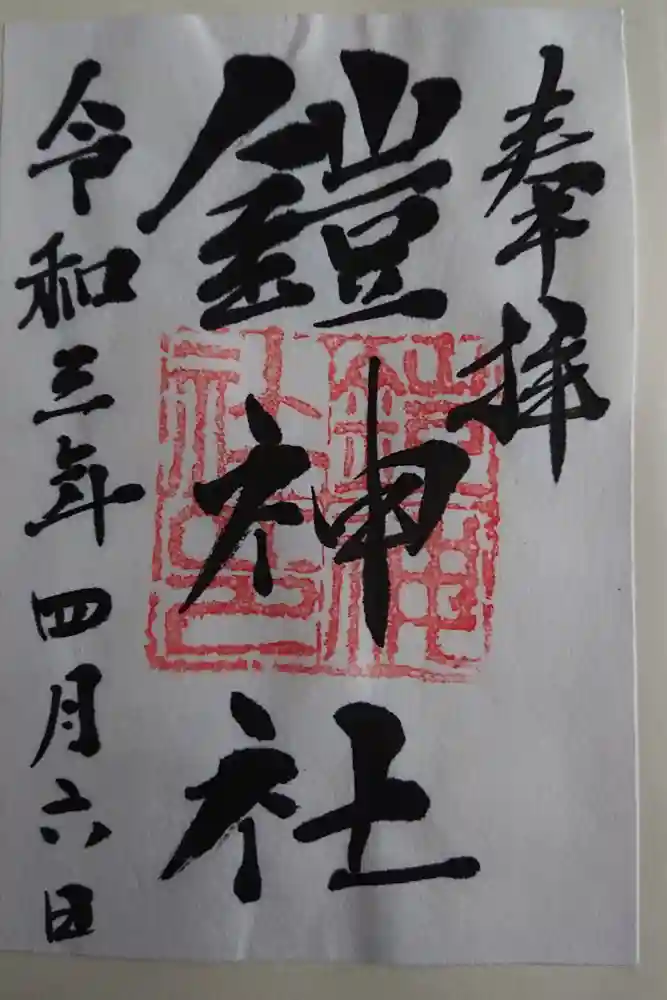 奉拝
鎧神社
鎧神社之印
令和三年四月六日